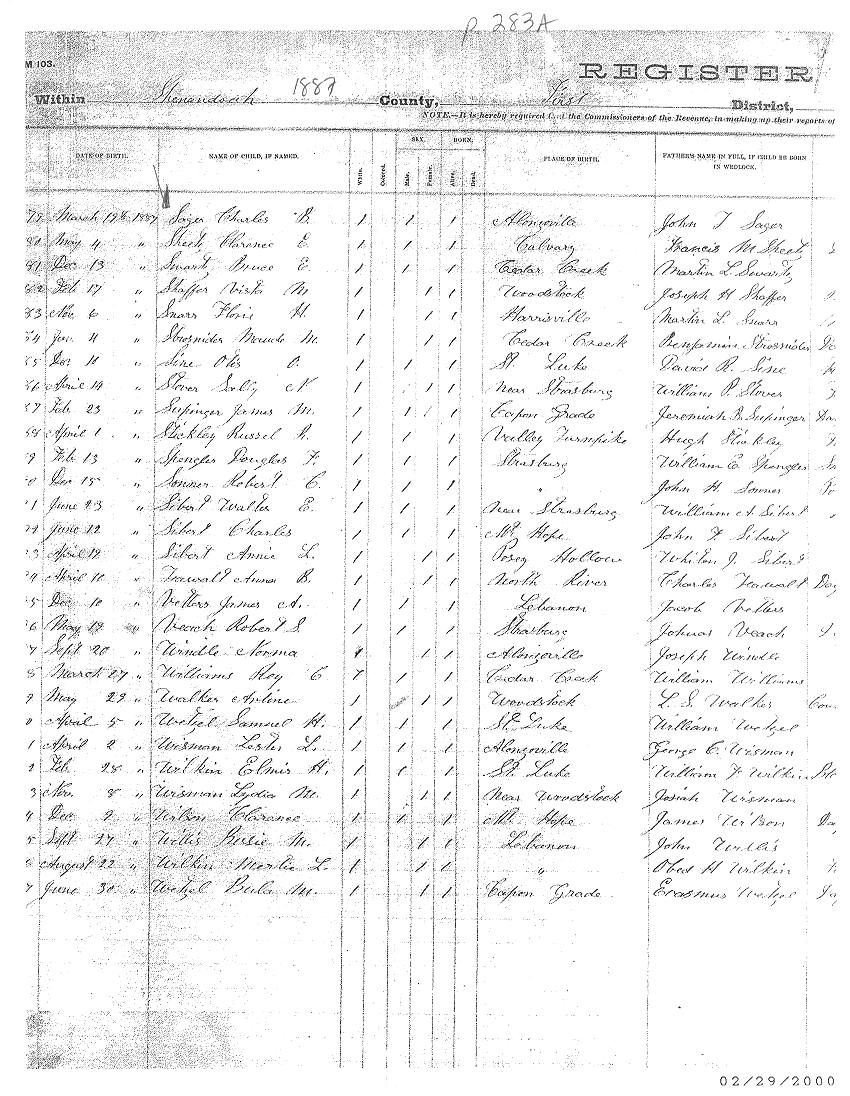 p. 283A
M 103.
REGISTER
Within Shenandoah 1887 County, First District,
NOTE.—It is hereby required that the Commissioners of the Revenue, in making up their reports of
DATE OF BIRTH. NAME OF CHILD, IF NAMED. White. Colored. SEX. Male. Female. BORN. Alive. Dead. PLACE OF BIRTH. FATHER'S NAME IN FULL, IF CHILD BE BORN IN WEDLOCK.
79 March 19th 1887 Sager Charles B. 1 1 1 Alonzoville John T Sager
80 May 4 " Sheetz Clarence E. 1 1 1 Calvary Francis M Sheetz
81 Dec 13 " Swartz Bruce E. 1 1 1 Cedar Creek Martin L. Swartz
82 Feb 17 " Shaffer Vista M 1 1 1 Woodstock Joseph H Shaffer
83 Nov. 6 " Snarr Flovie H. 1 1 1 Harrisville Martin L. Snarr
84 Jan. 11 " Strosnider Maude M. 1 1 1 Cedar Creek Benjamin Strosnider
85 Dec 18 " Sine Otis O. 1 1 1 St. Luke David R. Sine
86 April 14 " Stover Sally N 1 1 1 Near Strasburg William P. Stover
87 Feb 23 " Supinger James M. 1 1 1 Capon Grade Jeremiah B. Supinger
88 April 1 " Stickley Russel R. 1 1 1 Valley Turnpike Hugh Stickley
9 Feb 13 " Spengler Douglas F. 1 1 1 Strasburg William E Spengler
0 Dec 15 " Sonner Robert C. 1 1 1 " John H. Sonner
1 June 23 " Sibert Walter E. 1 1 1 Near Strasburg William A Sibert
92 June 12 " Sibert Charles 1 1 1 Mt. Hope John F Sibert
3 April 12 " Sibert Annie L. 1 1 1 Posey Hollow Whiton J. Sibert
94 April 10 " Trawalt Anna B. 1 1 1 North River Charles Trawalt
5 Dec 10 " Vetters James A. 1 1 1 Lebanon Jacob Vetters
6 May 12 " Veach Robert S. 1 1 1 Strasburg Johnas Veach
7 Sept 20 " Windle Norma 1 1 1 Alonzoville Joseph Windle
8 March 27 " Williams Roy C 1 1 1 Cedar Creek William Williams
9 May 29 " Walker Arline 1 1 1 Woodstock L. S. Walker
0 April 5 " Wetzel Samuel H. 1 1 1 St. Luke William Wetzel
1 April 2 " Wisman Lester L. 1 1 1 Alonzoville George C. Wisman
2 Feb. 28 " Wilkin Elmir H. 1 1 1 St. Luke William F Wilkin
3 Nov. 8 " Wisman Lydia M. 1 1 1 Near Woodstock Josiah Wisman
4 Dec 2 " Wilson Clarence 1 1 1 Mt. Hope James Wilson
5 Sept 27 " Willis Bessie M. 1 1 1 Lebanon John Willis
6 August 22 " Wilkin Mertie L. 1 1 1 " Obed H Wilkin
7 June 30 " Wetzel Bula M. 1 1 1 Capon Grade Erasmus Wetzel
02/29/2000